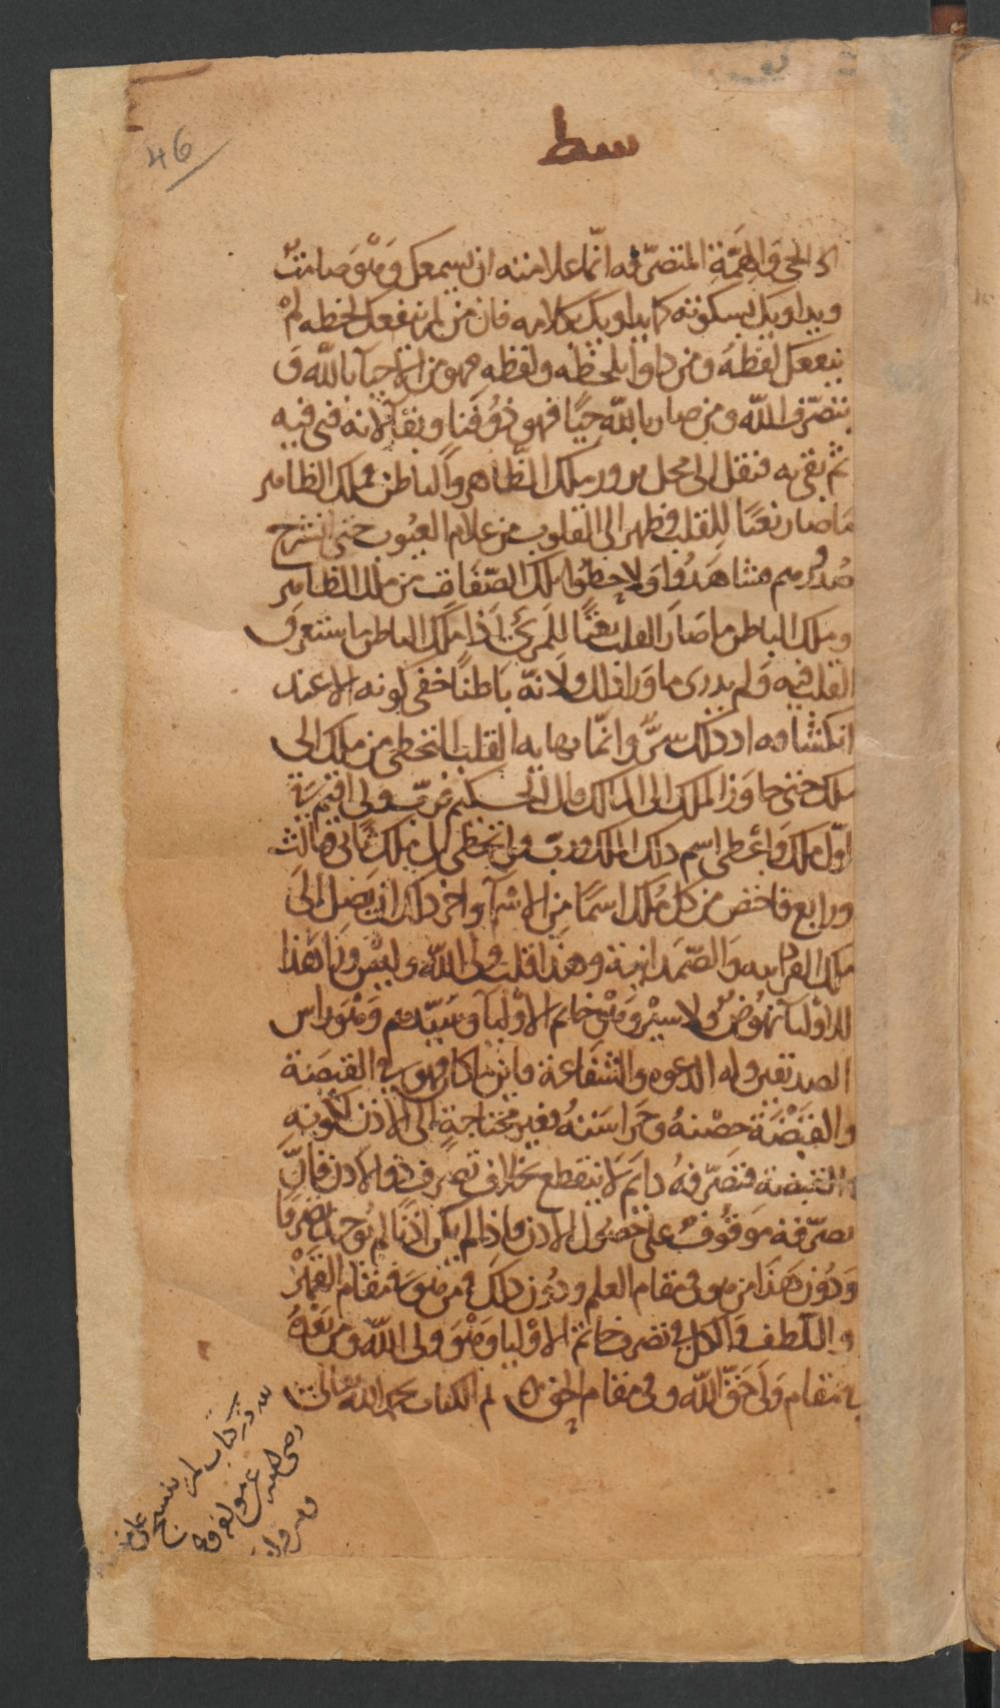 46
سط
الى الحى والهمة المتصرفه انما علامته ان يسمعك وهو صامت
ويداويك بسكوته كما يداويك بكلامه فان من لم ينفعك لحظه لم
ينفعك لفظه ومن داوا بلحظه ولفظه فهو من الاحيآ بالله و
بتصرف الله ومن صار بالله حيًا فهو ذو فنا وبقآ لانه فنى فيه
ثم بقى به فنقل الى محل يرور ملك الظاهر والباطن وملك الظاهر
ما صار نعتًا للقلب فظهر الى القلوب من علام الغيوب حتى انشرح
صدورهم فشاهدوا ولاحظوا ملك الصفات من ملك الظاهر
وملك الباطن ما صار القلب نعتًا للمرئ اذا ملك الباطن ما ستغرق
القلب فيه ولم يدرى ما ورا ذلك ولانه باطنًا خفى كونه الا عند
انكشافه اذ ذلك سرٌّ وانما نهايه القلب التخطى من ملك الى
ملك حتى جاوز الملك الى المالك قال الحكيم فرب ولى اقيم فى
اول ملك واعطى اسم ذلك الملك ورب من تخطى الى ملك ثانى وثالث
ورابع فاخص من كل ملك اسمًا من الاسمآ واخر ذلك ان يصل الى
ملك الفردانيه والصمدانية وهذا قلب ولى الله وليس ورا هذا
للاوليآ نهوض ولا سير وهو خاتم الاوليآ وسيدهم وهو راس
الصديقين وله الدعوه والشفاعة فاينما كان فهو فى القبضة
والقبضة حصنه وحراسته فغير محتاجة الى الاذن لكونه
فى القبضة فتصرفه دايم لا ينقطع بخلاف تصرف ذو الاذن فان
تصرفه موقوف على حصول الاذن فاذا لم يكن اذنًا لم يوجد تصرفا
ودون هذا من هو فى مقام العلم ودون ذلك من هو فى مقام القهر
واللطف والكل فى تصرف خاتم الاوليا وهو ولى الله ومن بعده
فى مقام ولى حق الله وفى مقام الحق تم الكتاب بحمد الله تعالى